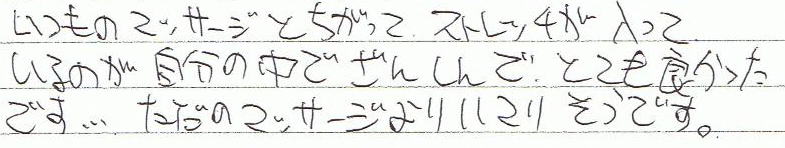 いつものマッサージとちがって、ストレッチが入って
いるのが自分の中でぜんしんで、とても良かった
です… ただのマッサージより
そうです。